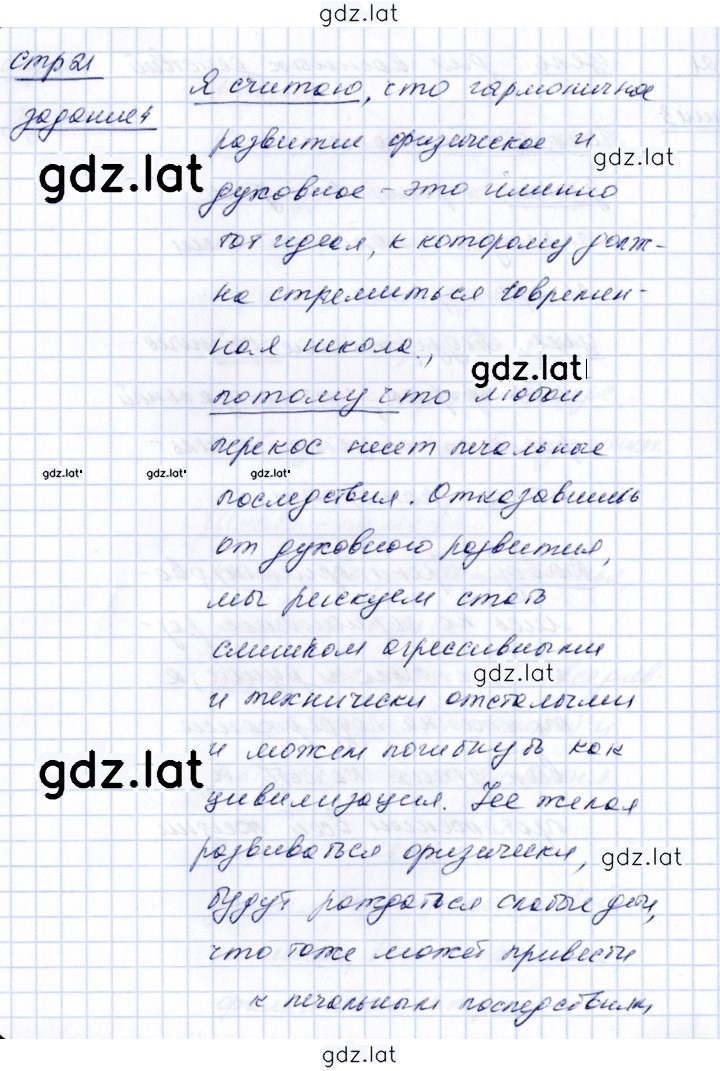 gdz.lat
стр 21
Я считаю, что гармоничное
задание 4
развитие физическое и
gdz.lat
gdz.lat
духовное - это именно
тот идеал, к которому долж-
на стремиться современ-
ная школа.,
gdz.lat
потому что любой
перекос несет печальные
gdz.lat gdz.lat gdz.lat
последствия. Отказавшись
от духовного развития,
мы рискуем стать
слишком агрессивными
gdz.lat
и технически отсталыми
и можем погибнуть как
gdz.lat
цивилизация. Не желая
развиваться физически,
gdz.lat
будут рождаться слабые дети,
что тоже может привести
к печальным последствиям
gdz.lat